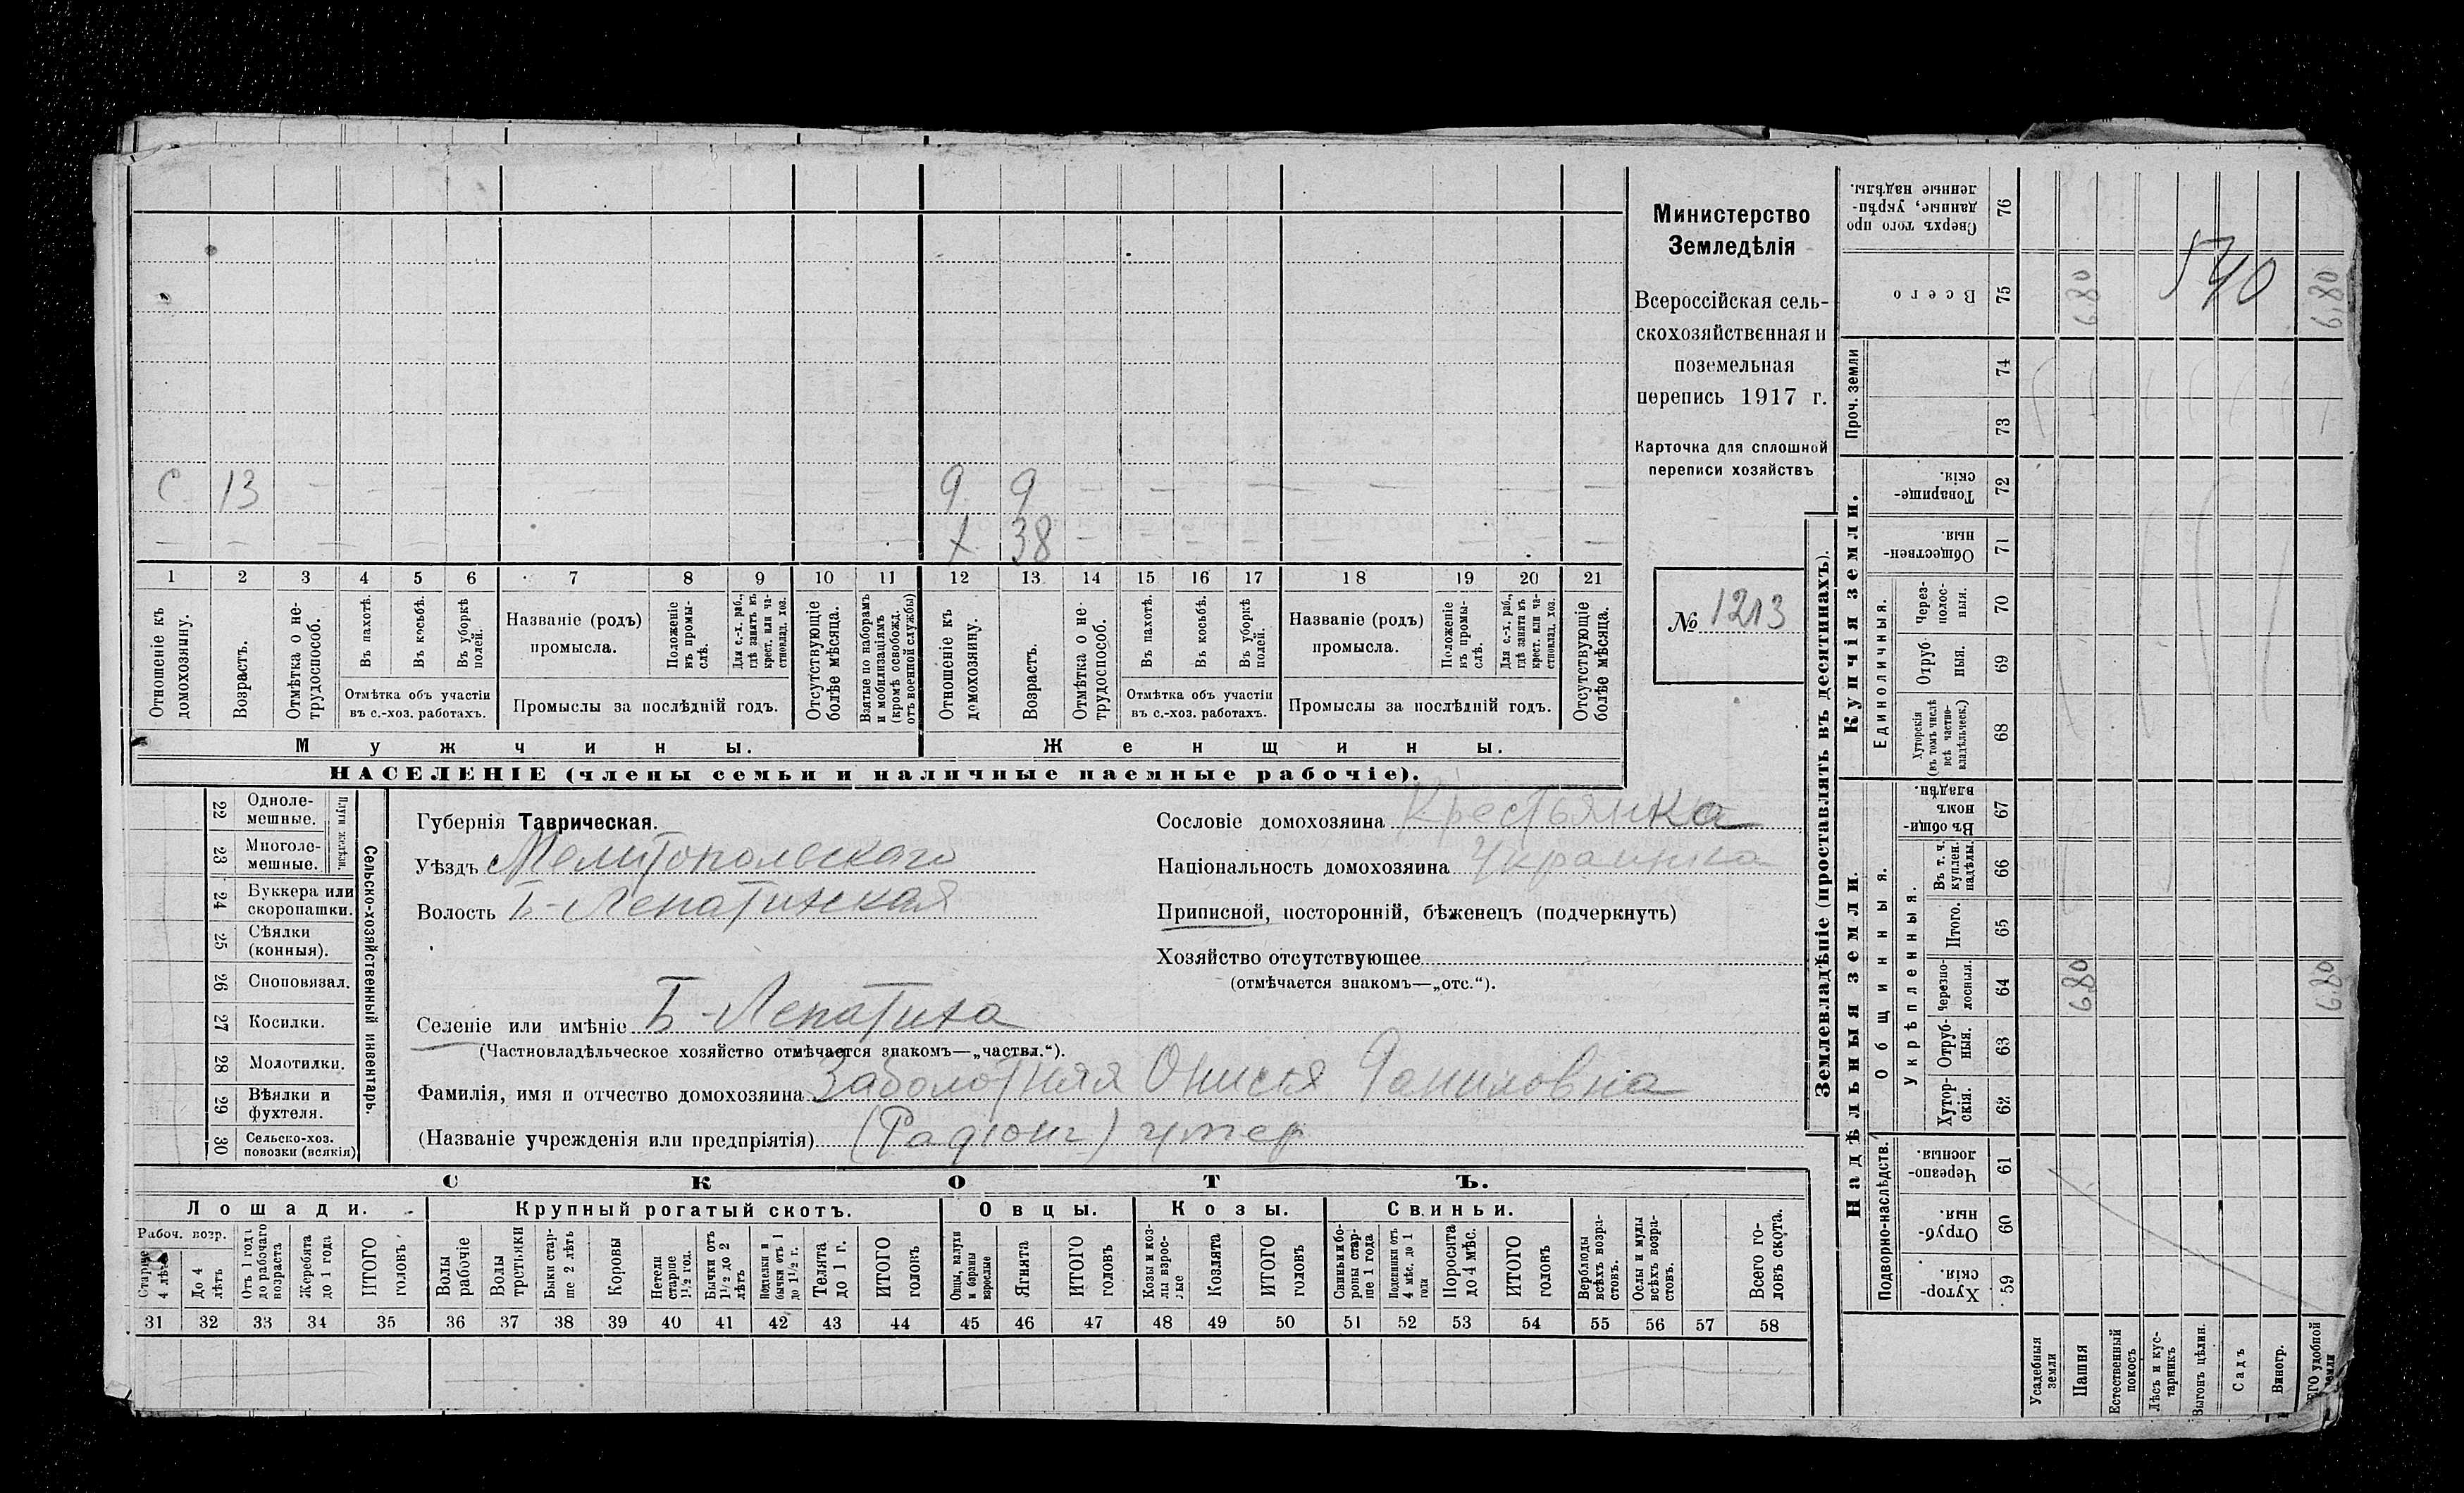 С 13 — — — — — — — — — 9 9 — — — — — — — —
— — — — — — — — — — — Х 38 — — — — — — — —
1 2 3 4 5 6 7 8 9 10 11 12 13 14 15 16 17 18 19 20 21
Отношеніе къ домохозяину.
Возрастъ.
Отмѣтка о нетрудоспособ.
Въ пахотѣ.
Въ косьбѣ.
Въ уборкѣ полей.
Отмѣтка объ участіи
въ с.-хоз. работахъ.
Названіе (родъ)
промысла.
Положеніе въ промыслѣ.
Для с.-х. раб., гдѣ занятъ въ крест. или частновлад. хоз.
Промыслы за послѣдній годъ.
Отсутствующіе болѣе мѣсяца.
Взятые по наборамъ и мобилизаціямъ (кромѣ освобожд. отъ военной службы)
Отношеніе къ домохозяину.
Возрастъ.
Отмѣтка о нетрудоспособ.
Въ пахотѣ.
Въ косьбѣ.
Въ уборкѣ полей.
Отмѣтка объ участіи
въ с.-хоз. работахъ.
Названіе (родъ)
промысла.
Положеніе въ промыслѣ.
Для с.-х. раб., гдѣ занята въ крест. или частновлад. хоз.
Промыслы за послѣдній годъ.
Отсутствующіе болѣе мѣсяца.
Мужчины.
Женщины.
НАСЕЛЕНІЕ (члены семьи и наличные наемные рабочіе).
Министерство
Земледѣлія
Всероссійская сель-
скохозяйственная и
поземельная
перепись 1917 г.
Карточка для сплошной
переписи хозяйствъ
№ 1213
22 Однолемешные.
23 Многолемешные.
Плуги желѣзн.
24 Буккера или скоропашки.
25 Сѣялки (конныя).
26 Сноповязал.
27 Косилки.
28 Молотилки.
29 Вѣялки и фухтеля.
30 Сельско-хоз. повозки (всякія)
Сельско-хозяйственный инвентарь.
Губернія Таврическая.
Уѣздъ Мелитопольскаго
Волость Б-Лепатихская
Селеніе или имѣніе Б-Лепатиха
(Частновладѣльческое хозяйство отмѣчается знакомъ—„частвл.“).
Фамилія, имя и отчество домохозяина Заболотняя Онисья Даниловна
(Названіе учрежденія или предпріятія) (Радіонъ) умер
Сословіе домохозяина Крестьянка
Національность домохозяина Украинка
Приписной, посторонній, бѣженецъ (подчеркнуть)
Хозяйство отсутствующее
(отмѣчается знакомъ—„отс.“).
СКОТЪ.
Лошади.
Крупный рогатый скотъ.
Овцы.
Козы.
Свиньи.
Рабоч. возр.
Старше 4 лѣтъ
До 4 лѣтъ
Отъ 1 года до рабочаго возраста
Жеребята до 1 года
ИТОГО головъ
Волы рабочіе
Волы третьяки
Быки старше 2 лѣтъ
Коровы
Нетели старше 1½ год.
Бычки отъ 1½ до 2 лѣтъ
Подтелки и бычки отъ 1 до 1½ г.
Телята до 1 г.
ИТОГО головъ
Овцы, валухи и бараны взрослые
Ягнята
ИТОГО головъ
Козы и козлы взрослые
Козлята
ИТОГО головъ
Свиньи и боровы старше 1 года
Подсвинки отъ 4 мѣс. до 1 года
Поросята до 4 мѣс.
ИТОГО головъ
Верблюды всѣхъ возрастовъ.
Ослы и мулы всѣхъ возрастовъ.
Всего головъ скота.
31 32 33 34 35 36 37 38 39 40 41 42 43 44 45 46 47 48 49 50 51 52 53 54 55 56 57 58
Землевладѣніе (проставлять въ десятинахъ).
Надѣльныя земли.
Купчія земли.
Проч. земли
Подворно-наслѣдств.
Общинныя.
Укрѣпленныя.
Единоличныя.
59 Хуторскія.
60 Отрубныя.
61 Черезполосныя.
62 Хуторскія.
63 Отрубныя.
64 Черезполосныя.
65 Итого.
66 Въ т. ч. куплен. надѣлы.
67 Въ общинномъ владѣн.
68 Хуторскія (въ томъ числѣ всѣ частновладѣльческ.)
69 Отрубныя.
70 Черезполосныя.
71 Общественныя.
72 Товарищескія.
73
74
75 Всего
76 Сверхъ того проданные, укрѣпленные надѣлы.
Усадебныя земли
Пашня 6,80 6,80
Естественный покосъ
Лѣсъ и кустарникъ
Выгонъ цѣлин.
Садъ
Виногр.
ЕГО удобной земли 6,80 6,80
540